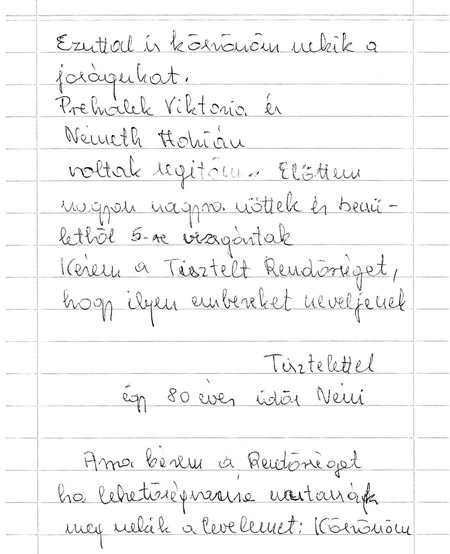 Ezuttal is köszönöm nekik a
jóságukat.
Prehalek Viktoria és
Németh Adrián
voltak segítőim. Előttem
nagyon nagyra nőttek és becsü-
letből 5-re vizsgáztak
Kérem a Tisztelt Rendőrséget,
hogy ilyen embereket neveljenek
Tisztelettel
egy 80 éves idős Néni
Arra kérem a Rendőrséget
ha lehetőség mutassák
meg nekik a levelemet: Köszönöm